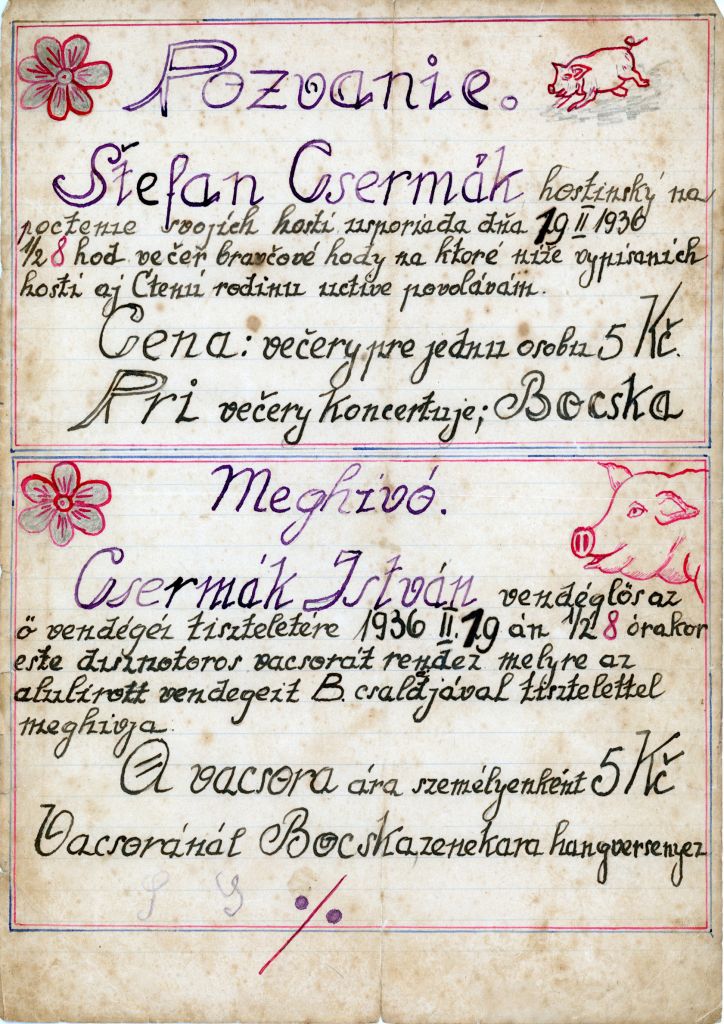 Pozvanie.
Štefan Csermák hostinský na
poctenie svojích hostí usporiada dňa 19 II 1936
½ 8 hod večeř bravčové hody na ktoré níže vypísaních
hostí aj Ctenú rodinu uctive povolávám.
Cena: večery pre jednu osobu 5 Kč.
Pri večery koncertuje; Bocska
Meghívó.
Csermák István vendéglős az
ő vendégei tiszteletére 1936 II. 19 án ½ 8 órakor
este disznotoros vacsorát rendez melyre az
alulirott vendegeit B. családjával tisztelettel
meghivja.
A vacsora ára személyenként 5 Kč
Vacsoránál Bocska zenekara hangversenyez